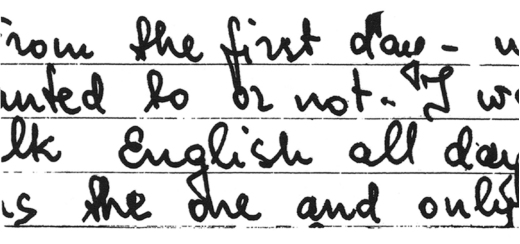 rom the first day - w
unted to or not. I w
lk English all day
is the one and only